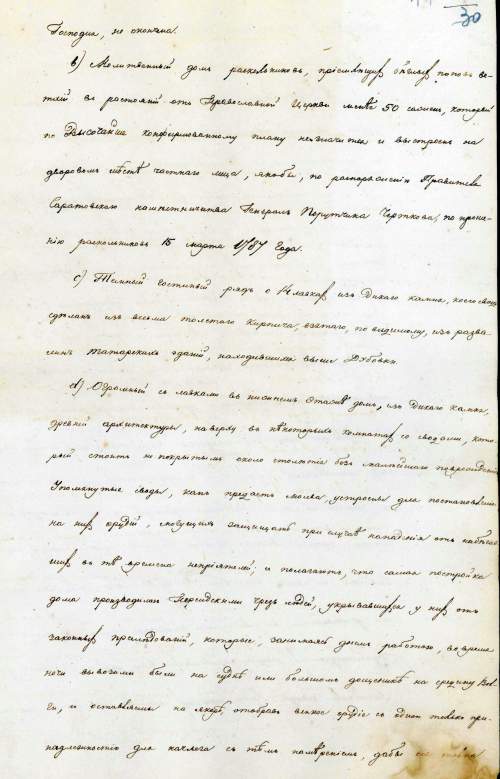 30
Господня, не окончена.
в) Молитвенный домъ раскольниковъ, пріемлющихъ бѣглыхъ поповъ ве-
тхій въ растояніи отъ Православной Церкви менѣе 50 сажень, который
по Высочайше конфирмованному плану не значится и выстроенъ на
дворовомъ мѣстѣ частнаго лица, якобы, по распоряженію Правителя
Саратовскаго намѣстничества Генералъ Порутчика Черткова, по проше-
нію раскольниковъ 15 марта 1787 года.
с) Темный гостиный рядъ о 14 лавкахъ изъ дикаго камня, коего своды
сдѣланы изъ весьма толстаго кирпича, взятаго, по видимому, изъ разва-
линъ татарскихъ зданій, находившихся выше Дубовки.
d) Огромный съ лавками въ нижнемъ этажѣ домъ, изъ дикаго камня,
древней архитектуры, на верху въ нѣкоторыхъ комнатахъ со сводами, кото-
рый стоитъ не покрытымъ около столѣтія безъ малѣйшаго поврежденія
Упомянутые своды, какъ предаетъ молва, устроены для постановленія
на нихъ орудій, могущихъ защищать при случаѣ нападенія отъ набѣгав-
шихъ въ тѣ времена непріятелей; и полагаютъ, что самая постройка
дома производилась Персидскими чрезъ людей, укрывавшихся у нихъ отъ
законныхъ преслѣдованій, которые, занимаясь днемъ работою, во время
ночи вывозимы были на судкѣ или большомъ дощеникѣ на средину Вол-
ги, и оставляемы на якорѣ, отобравъ всякое орудіе съ одной только при-
надлежностію для ночлега съ тѣмъ намѣреніемъ, дабы